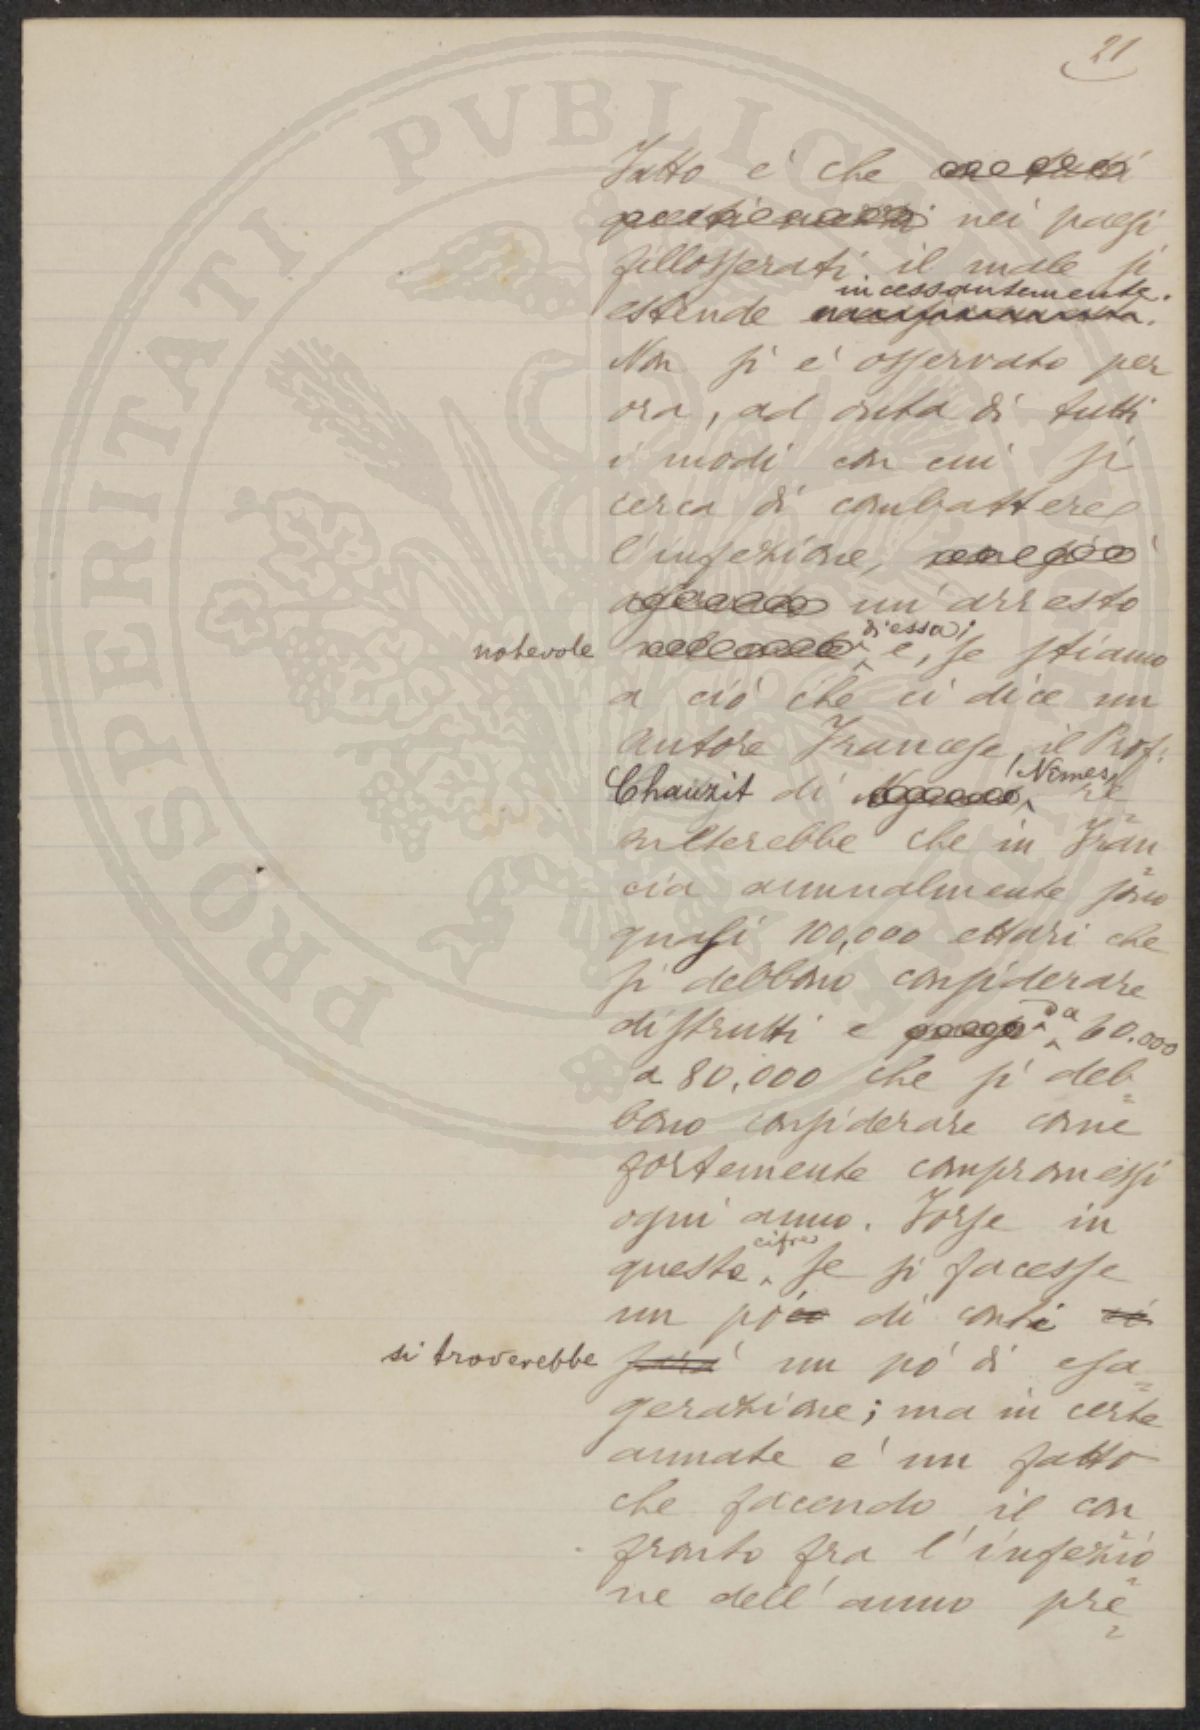 21
Fatto è che
nei paesi
fillosserati il male si
incessantemente.
estende
Non si è osservato per
ora, ad onta di tutti
i modi con cui si
cerca di combattere
l'infezione,
un'arresto
notevole di essa; e, se stiamo
a ciò che ci dice un
autore Francese, il Prof.
Chauzit di Nîmes, re
sulterebbe che in Fran
cia annualmente sono
quasi 100,000 ettari che
si debbono considerare
distrutti e da 60.000
a 80.000 che si deb
bono considerare come
fortemente compromessi
ogni anno. Forse in
queste cifre se si facesse
un pó di conti
si troverebbe un pó di esa
gerazione; ma in certe
annate è un fatto
che facendo il con
fronto fra l'infezio
ne dell'anno pre
PROSPERITATI PUBLICAE